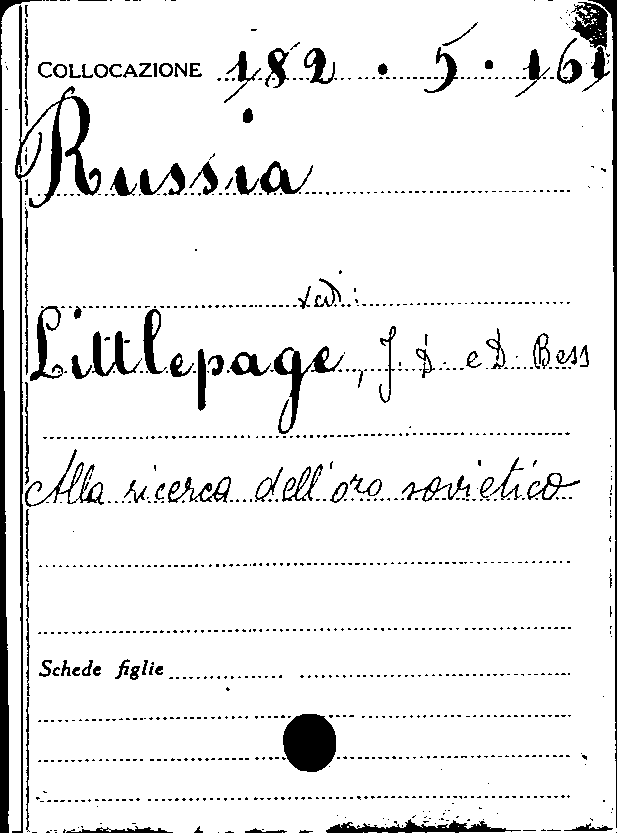 COLLOCAZIONE 182 . 5 . 161
Russia
vedi:
Littlepage, J. D. e D. Bess
Alla ricerca dell'oro sovietico
Schede figlie